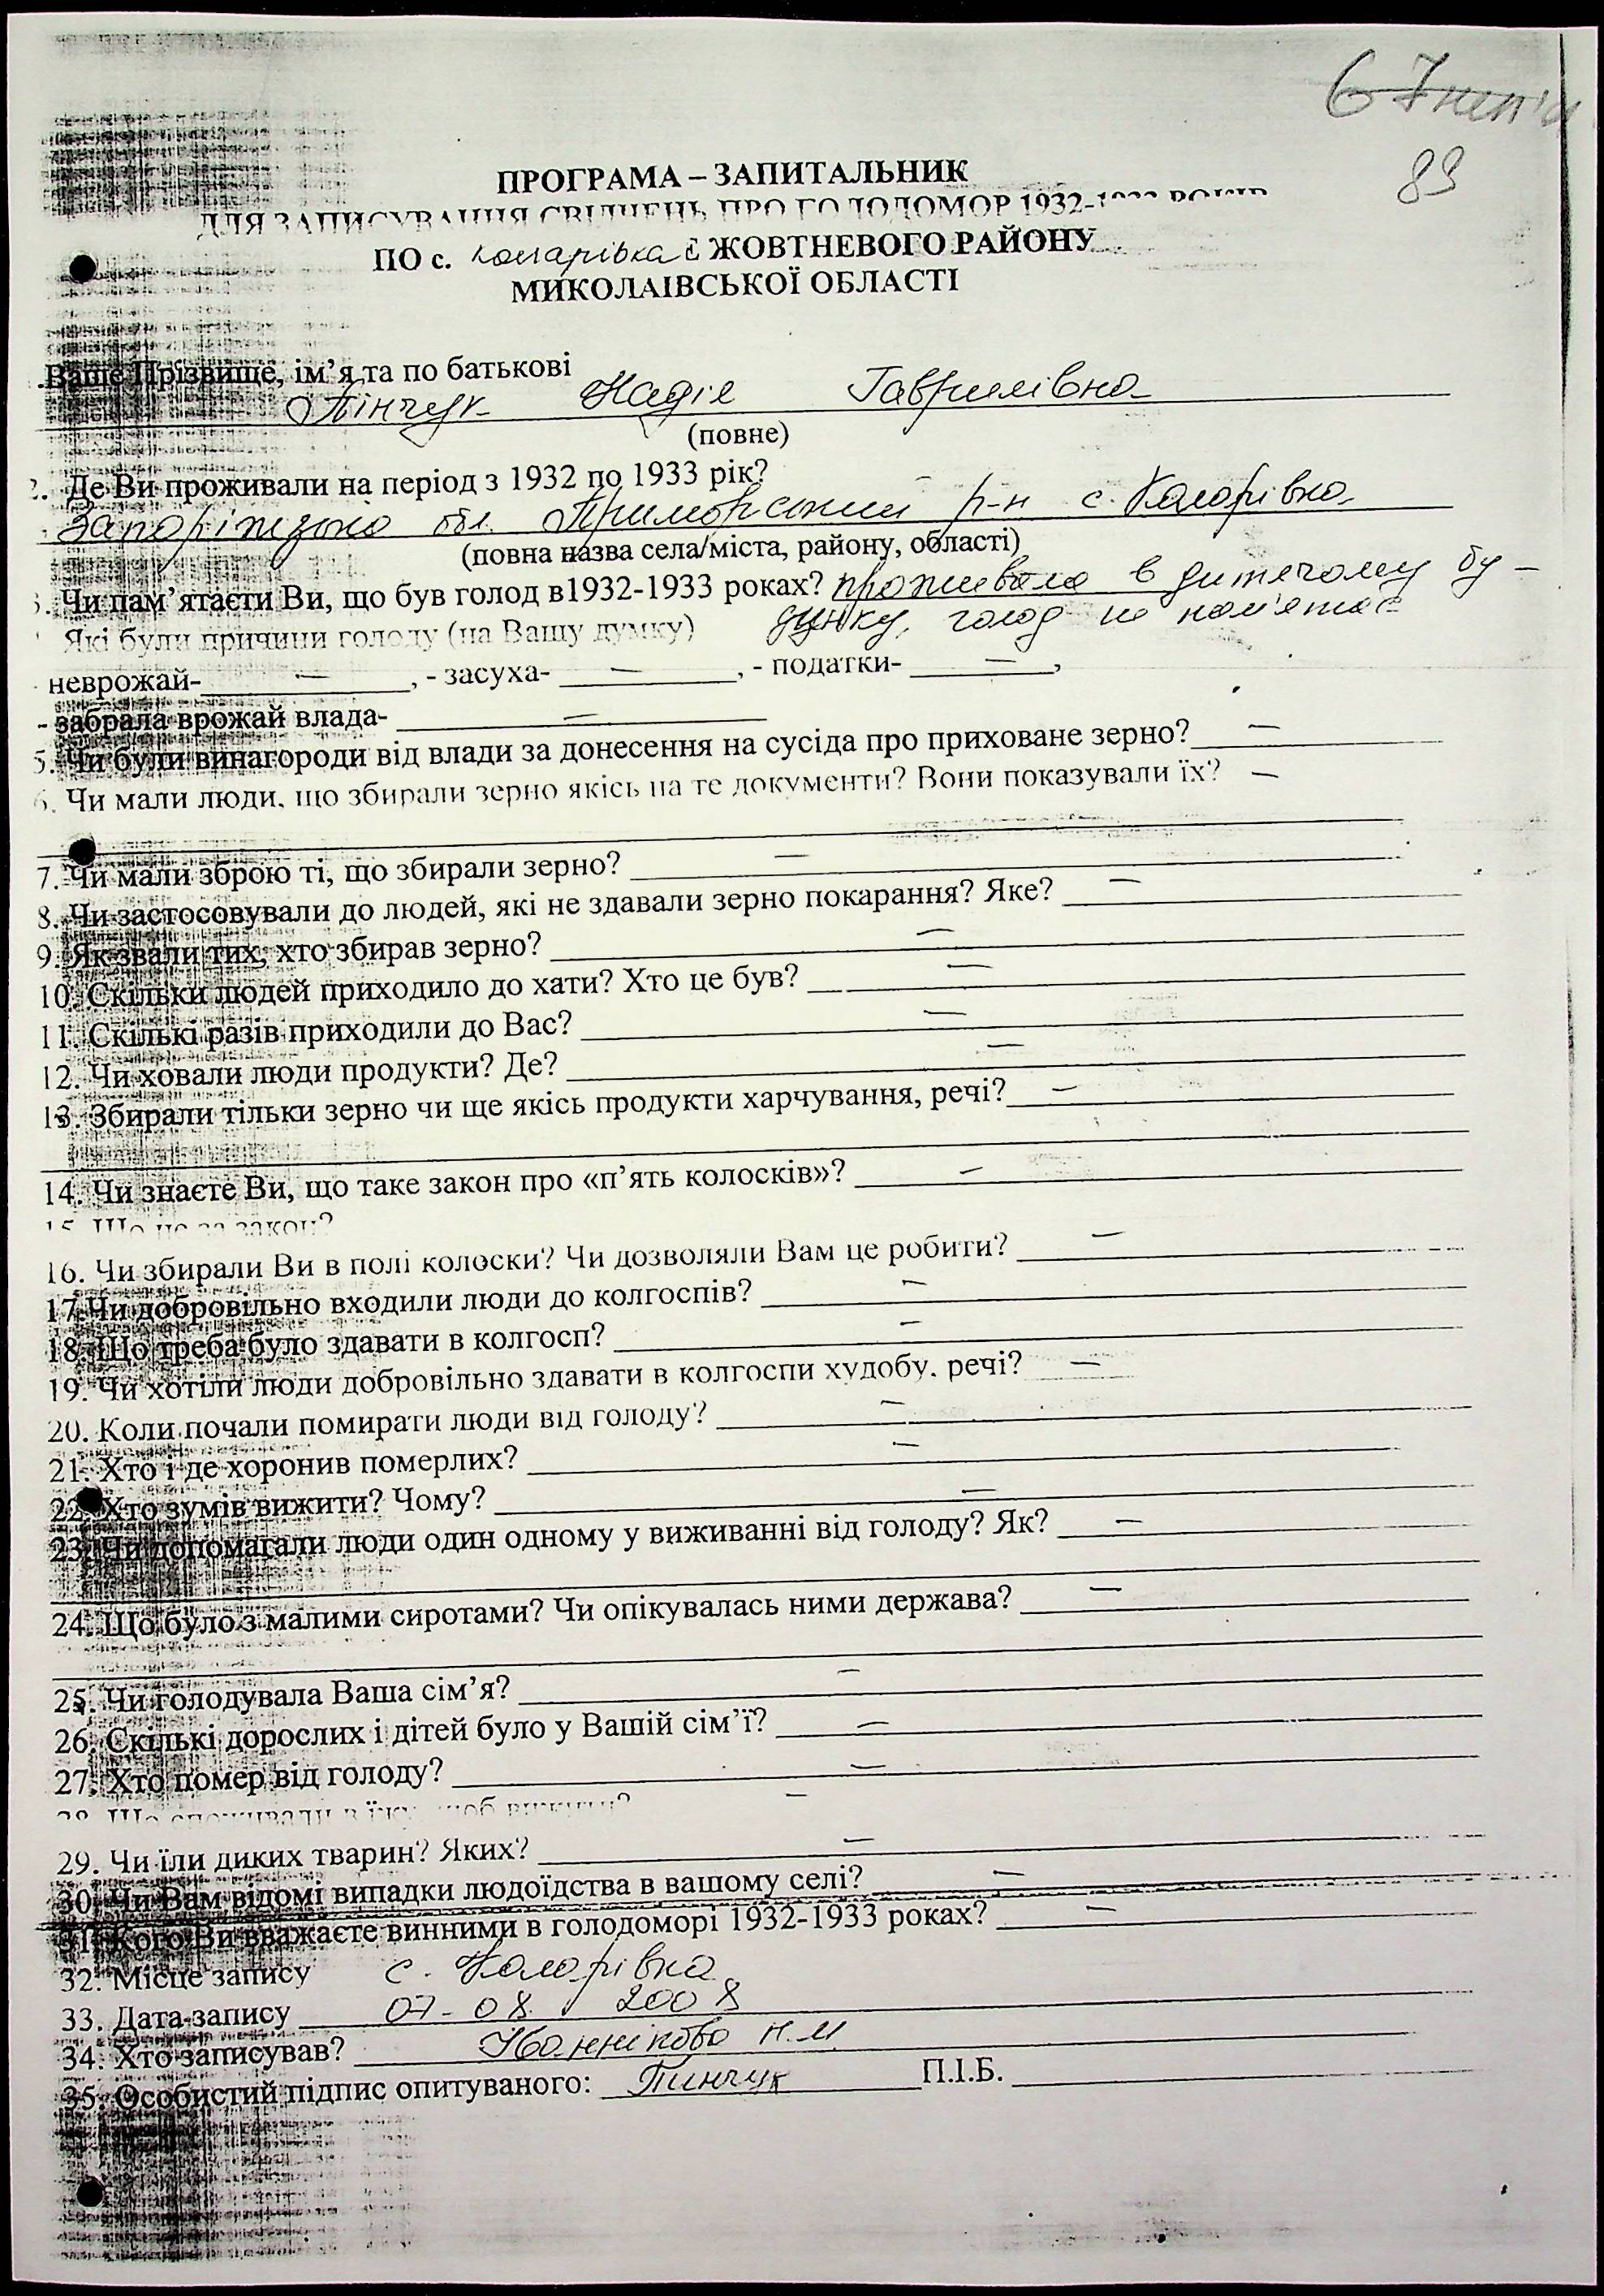 67
89
ПРОГРАМА – ЗАПИТАЛЬНИК
ДЛЯ ЗАПИСУВАННЯ СВІДЧЕНЬ ПРО ГОЛОДОМОР 1932-1933 РОКІВ
ПО с. Комарівка ЖОВТНЕВОГО РАЙОНУ
МИКОЛАІВСЬКОЇ ОБЛАСТІ
.Ваше Прізвище, ім’я та по батькові
Пінчук Надія Гаврилівна
(повне)
2. Де Ви проживали на період з 1932 по 1933 рік?
Запорізька обл. Приморський р-н с.
(повна назва села/міста, району, області)
3. Чи пам’ятаєти Ви, що був голод в1932-1933 роках? проживала в дитячому бу-
Які були причини голоду (на Вашу думку) динку, голод не пам'ятає
неврожай- — , - засуха- — , - податки- — ,
- забрала врожай влада- —
5. Чи були винагороди від влади за донесення на сусіда про приховане зерно? —
6. Чи мали люди, що збирали зерно якісь на те документи? Вони показували їх? —
7. Чи мали зброю ті, що збирали зерно? —
8. Чи застосовували до людей, які не здавали зерно покарання? Яке? —
9. Як звали тих, хто збирав зерно? —
10. Скільки людей приходило до хати? Хто це був? —
11. Скількі разів приходили до Вас? —
12. Чи ховали люди продукти? Де? —
13. Збирали тільки зерно чи ще якісь продукти харчування, речі? —
14. Чи знаєте Ви, що таке закон про «п’ять колосків»? —
15. Що це за закон?
16. Чи збирали Ви в полі колоски? Чи дозволяли Вам це робити? —
17.Чи добровільно входили люди до колгоспів? —
18. Що треба було здавати в колгосп? —
19. Чи хотіли люди добровільно здавати в колгоспи худобу, речі? —
20. Коли почали помирати люди від голоду? —
21. Хто і де хоронив померлих? —
22. Хто зумів вижити? Чому? —
23. Чи допомагали люди один одному у виживанні від голоду? Як? —
24. Що було з малими сиротами? Чи опікувалась ними держава? —
25. Чи голодувала Ваша сім’я? —
26. Скількі дорослих і дітей було у Вашій сім’ї? —
27. Хто помер від голоду? —
28. Що споживали в їжу, щоб вижити? —
29. Чи їли диких тварин? Яких? —
30. Чи Вам відомі випадки людоїдства в вашому селі? —
31. Кого Ви вважаєте винними в голодоморі 1932-1933 роках? —
32. Місце запису с.
33. Дата запису 07-08. 2008
34. Хто записував? Іваннікова Н.М.
35. Особистий підпис опитуваного: Пинчук П.І.Б.